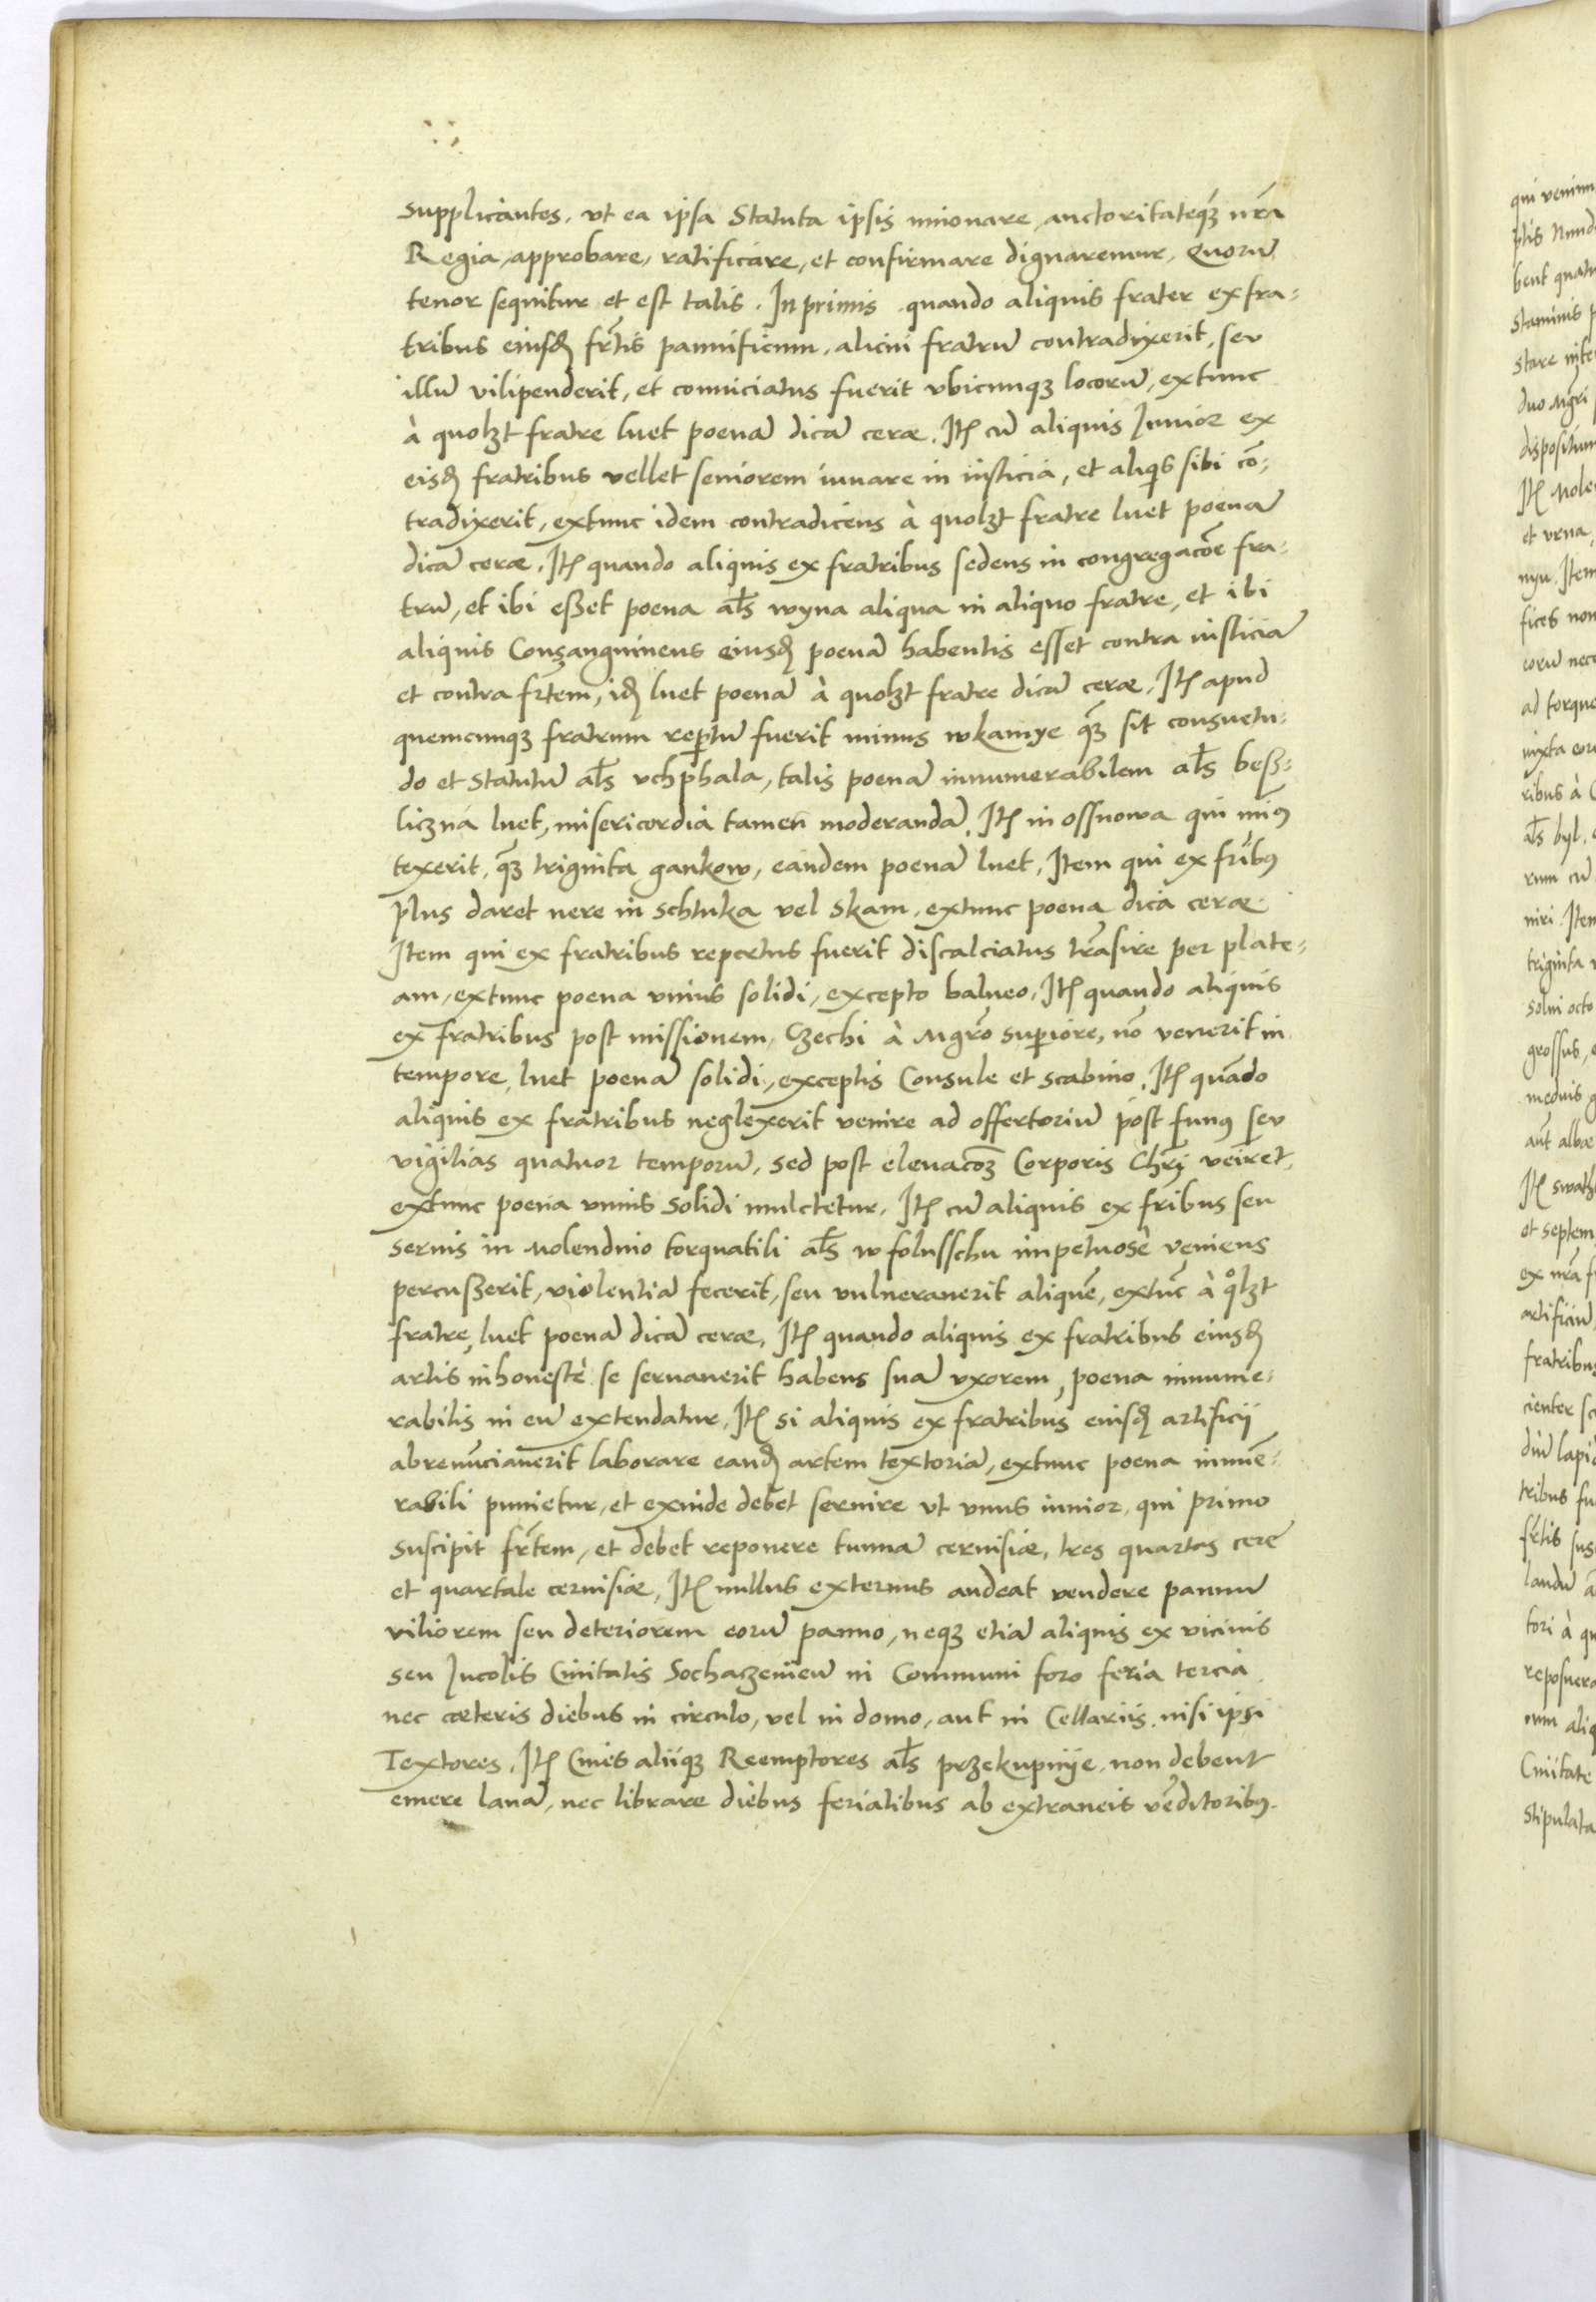 supplicantes, vt ea ipsa Statuta ipsis innouare, auctoritateq́ꝫ nr̃a
Regia, approbare, ratificare, et confirmare dignaremur, Quorũ
tenor sequitur et est talis. Inprimis quando aliquis frater ex fra-
tribus eiusꝺ fr̃tis pannificum, alicui fratrũ contradixerit, seu
illũ vilipenderit, et conuiciatus fuerit vbicunqꝫ locorũ, extunc
à quolꝫt fratre luet poenã dicã cerae. Itꝫ cũ aliquis Iunior ex
eisꝺ fratribus vellet seniorem iuuare in iusticia, et aliqis sibi cõ-
tradixerit, extunc idem contradicens à quolꝫt fratre luet poenã
dicã cerae. Itꝫ quando aliquis ex fratribus sedens in congregacõe fra-
trũ, et ibi esset poena als̃ wyna aliqua in aliquo fratre, et ibi
aliquis Consanguineus eiusꝺ poenã habentis esset contra iusticiã
et contra fr̃tem, iꝺ luet poenã à quolꝫt fratre dicã cerae. Itꝫ apud
quemcunqꝫ fratrum repertũ fuerit minus wkamye q̃ꝫ sit consuetu-
do et Statutũ als̃ vchphala, talis poenã innumerabilem als̃ bess-
liczna luet, misericordia tamen moderandã. Itꝫ in ossnowa qui min9
texerit, q̃ꝫ triginta gankow, eandem poenã luet, Item qui ex fr̃ib9
plus daret uere in schtuka vel Skam, extunc poena dica cerae.
Item qui ex fratribus repertus fuerit discalciatus trãsire per plate-
am, extunc poena vnius solidi, excepto balneo, Itꝫ quando aliquis
ex fratribus post missionem, Czechi à Mgr̃o superiore, nõ venerit in
tempore, luet poenã solidi, exceptis Consule et scabino. Itꝫ quãdo
aliquis ex fratribus neglexerit venire ad offertoriũ post fun9 seu
vigilias quatuor temporũ, sed post eleuacõꝫ Corporis Chrĩ veiret,
extunc poena vnius solidi mulctetur, Itꝫ cũ aliquis ex fribus seu
seruis in Molendino torquatili als̃ w folusschu impetuosè veniens
percusserit, violentiã fecerit, seu vulnerauerit aliquẽ, extũc à qolꝫt
fratre, luet poenã dicã cerae, Itꝫ quando aliquis ex fratribus eiusꝺ
artis inhonestè se seruauerit habens suã vxorem, poena innume-
rabilis in eũ extendatur, Itꝫ si aliquis ex fratribus eiusꝺ artificii
abrenũciauerit laborare eanꝺ artem textoriã, extunc poena innũe-
rabili punietur, et exinde debet seruire vt vnus iunior, qui primo
suscipit fr̃tem, et debet reponere tunnã ceruisiae, tres quartas cerẽ
et quartale ceruisiae, Itꝫ nullus externus audeat vendere pannũ
viliorem seu deteriorem eorũ panno, neqꝫ etiã aliquis ex vicinis
seu Incolis Ciuitatis Sochaczeuieñ in Communi foro feria tercia
nec caeteris diebus in circulo, vel in domo, aut in Cellariis, nisi ipsi
Textores, Itꝫ Ciues aliiqꝫ Reemptores als̃ przekupnije, non debent
emere lanã, nec librare diebus ferialibus ab extraneis vẽditorib9.